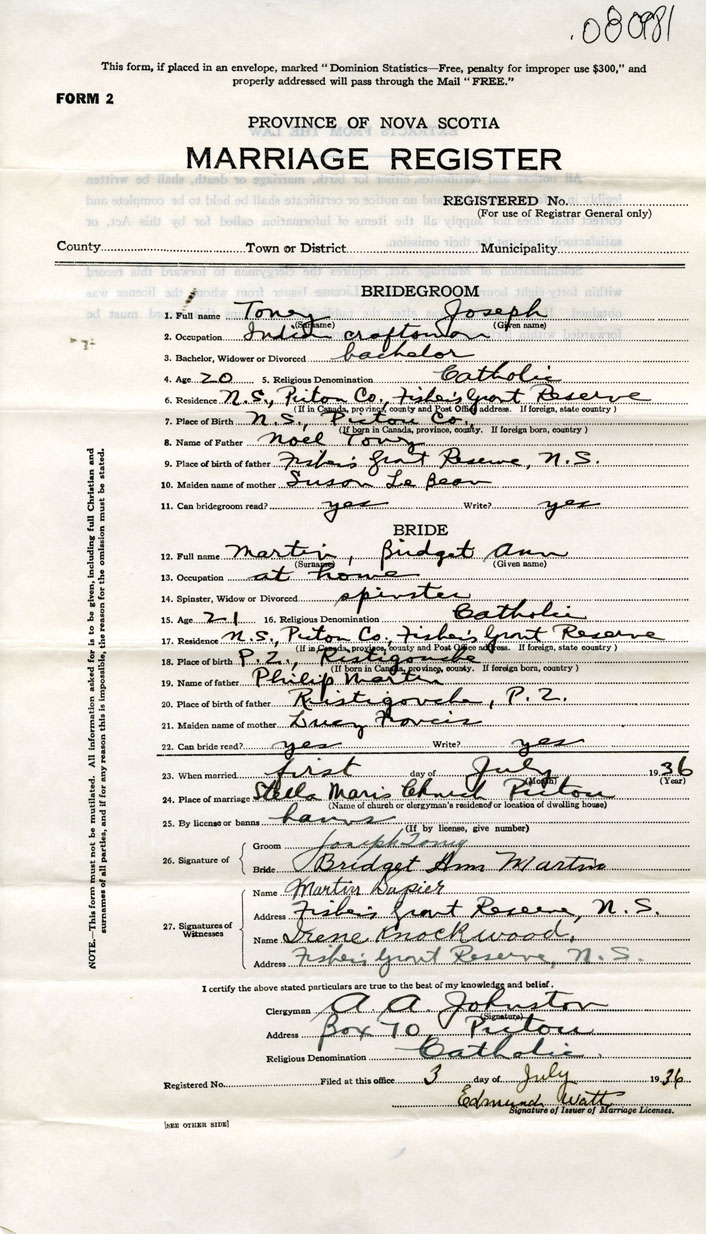 .080981
This form, if placed in an envelope, marked "Dominion Statistics—Free, penalty for improper use $300," and
properly addressed will pass through the Mail "FREE."
FORM 2
PROVINCE OF NOVA SCOTIA
MARRIAGE REGISTER
REGISTERED No.
(For use of Registrar General only)
County Town or District Municipality
BRIDEGROOM
1. Full name Toney Joseph
(Surname) (Given name)
2. Occupation Indian craftsman
3. Bachelor, Widower or Divorced bachelor
4. Age 20 5. Religious Denomination Catholic
6. Residence N.S., Pictou Co., Fisher's Grant Reserve
(If in Canada, province, county and Post Office address. If foreign, state country)
7. Place of Birth N.S., Pictou Co.,
(If born in Canada, province, county. If foreign born, country)
8. Name of Father Noel Toney
9. Place of birth of father Fisher's Grant Reserve, N.S.
10. Maiden name of mother Susan Le Bean
11. Can bridegroom read? yes Write? yes
BRIDE
12. Full name Martin, Bridget Ann
(Surname) (Given name)
13. Occupation at home
14. Spinster, Widow or Divorced spinster
15. Age 21 16. Religious Denomination Catholic
17. Residence N.S., Pictou Co., Fisher's Grant Reserve
(If in Canada, province, county and Post Office address. If foreign, state country)
18. Place of birth P.Z., Ristigouche
(If born in Canada, province, county. If foreign born, country)
19. Name of father Philip Martin
20. Place of birth of father Ristigouche, P.Z.
21. Maiden name of mother Lucy Francis
22. Can bride read? yes Write? yes
23. When married first day of July 1936
(Month) (Year)
24. Place of marriage Stella Maris Church Pictou
(Name of church or clergyman's residence or location of dwelling house)
25. By license or banns banns
(If by license, give number)
26. Signature of Groom Joseph Toney
Bride Bridget Ann Martin
27. Signatures of Witnesses
Name Martin Sapier
Address Fisher's Grant Reserve, N.S.
Name Irene Knockwood,
Address Fisher's Grant Reserve, N.S.
I certify the above stated particulars are true to the best of my knowledge and belief.
Clergyman A. A. Johnston
(Signature)
Address Box 70, Pictou
Religious Denomination Catholic.
Registered No. Filed at this office 3 day of July 1936
Edmund Watt
Signature of Issuer of Marriage Licenses.
[SEE OTHER SIDE]
NOTE.—This form must not be mutilated. All information asked for is to be given, including full Christian and
surnames of all parties, and if for any reason this is impossible, the reason for the omission must be stated.